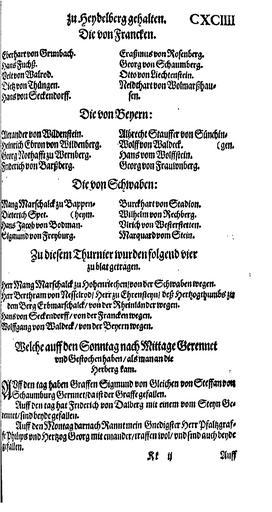 zu Heydelberg gehalten. CXCIIII
Die von Francken.
Eberhart von Grumbach. Eraßmus von Rosenberg.
Hans Fuchß. Georg von Schaumberg.
Veit von Walrod. Otto von Liechtenstein.
Dietz von Thüngen. Neidthart von Wolmarßhau-
Hans von Seckendorff. sen.
Die von Beyern:
Alexander von Wildenstein. Albrecht Stauffer von Sünchin-
Heinrich Ebron von Wildenberg. Wolff von Waldeck. (gen.
Georg Nothafft zu Wernberg. Hans vom Wolffstein.
Friderich von Barßberg. Georg von Frauwnberg.
Die von Schwaben:
Mang Marschalck zu Bappen- Burckhart von Stadion.
Dieterich Spet. (heym. Wilhelm von Rechberg.
Hans Jacob von Bodman. Ulrich von Westerstetten.
Sigmund von Freyburg. Marquard vom Stein.
Zu diesem Thurnier wurden folgend vier
zu blat getragen.
Herr Mang Marschalck zu Hohenreichen/ von der Schwaben wegen.
Herr Bertheram von Nesselrod/ Herr zu Ehrensteyn/ deß Hertzogthumbs zu
dem Berg Erbmarschalck/ von der Rheinländer wegen.
Hans von Seckendorff/ von der Francken wegen.
Wolffgang von Waldeck/ von der Beyern wegen.
Welche auff den Sonntag nach Mittage Gerennet
und Gestochen haben/ als man an die
Herberg kam.
Auff den tag haben Graffen Sigmund von Gleichen von Steffan von
Schaumburg Gerennet/ da ist der Graffe gefallen.
Auff den tag hat Friderich von Dalberg mit einem vom Steyn Ge-
rennet/ sind beyde gefallen.
Auff den Montag darnach Rannt mein Gnedigster Herr Pfaltzgraf-
fe Philips und Hertzog Georg mit einander/ traffen wol/ und sind auch beyde
gefallen.
Kk ij Auff